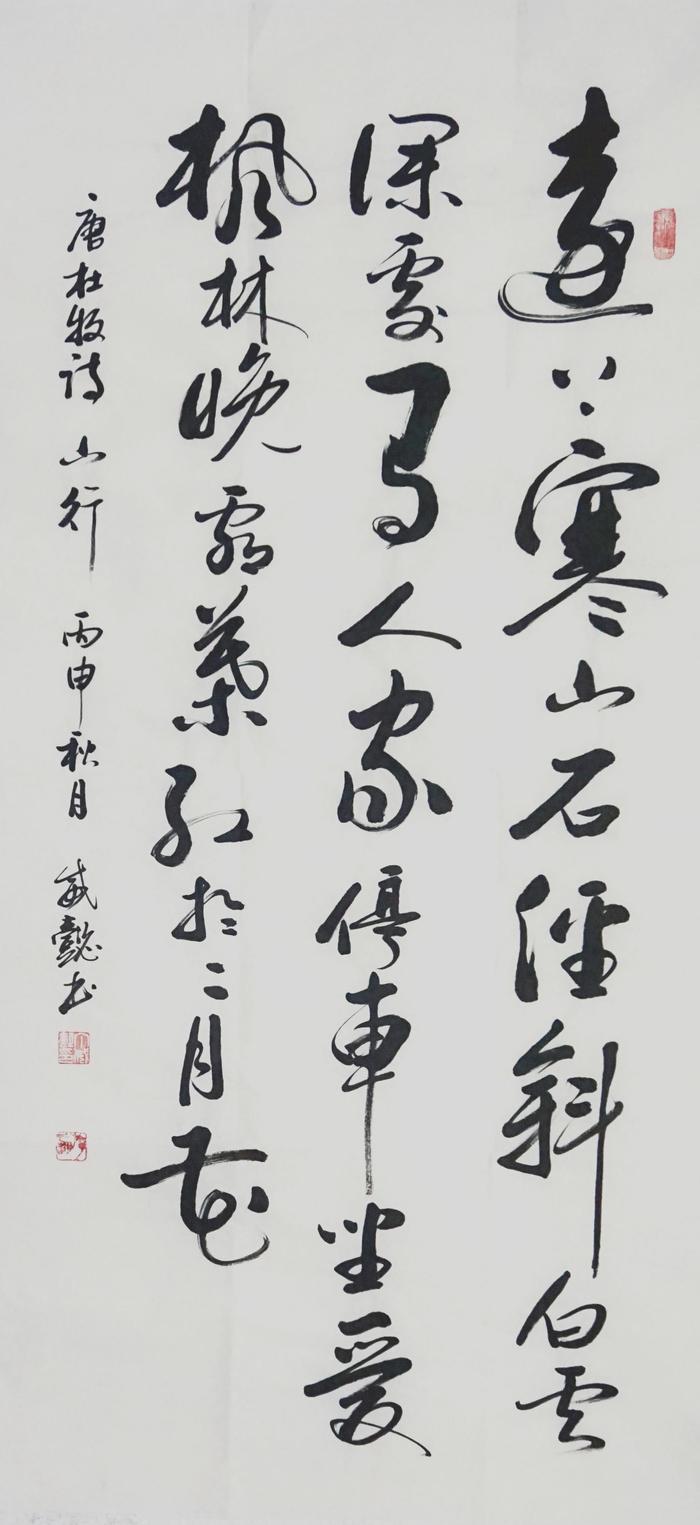 遠上寒山石徑斜白雲
深處有人家停車坐愛
楓林晚霜葉紅於二月花
唐杜牧詩 山行 丙申秋月 懿书